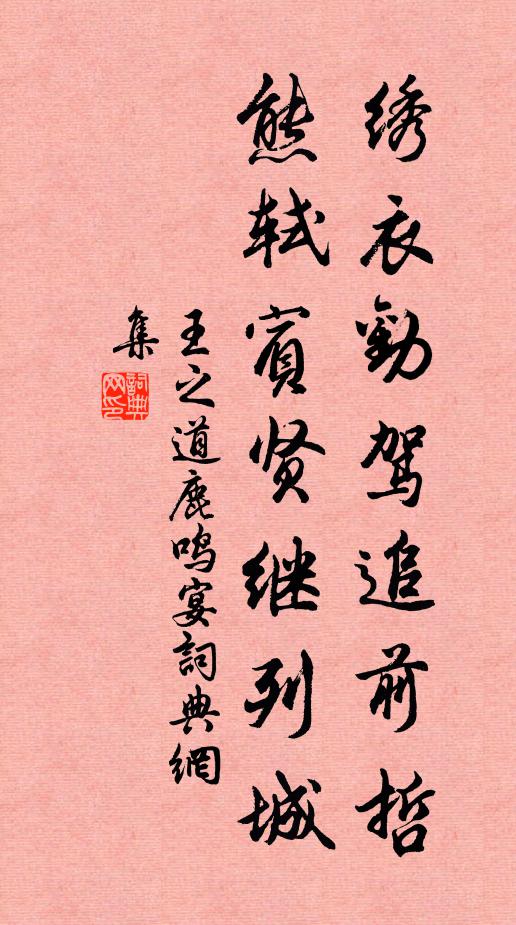 绣衣劝驾追前哲
熊轼宾贤继列城
王之道鹿鸣宴词典網
集
詞典
网印